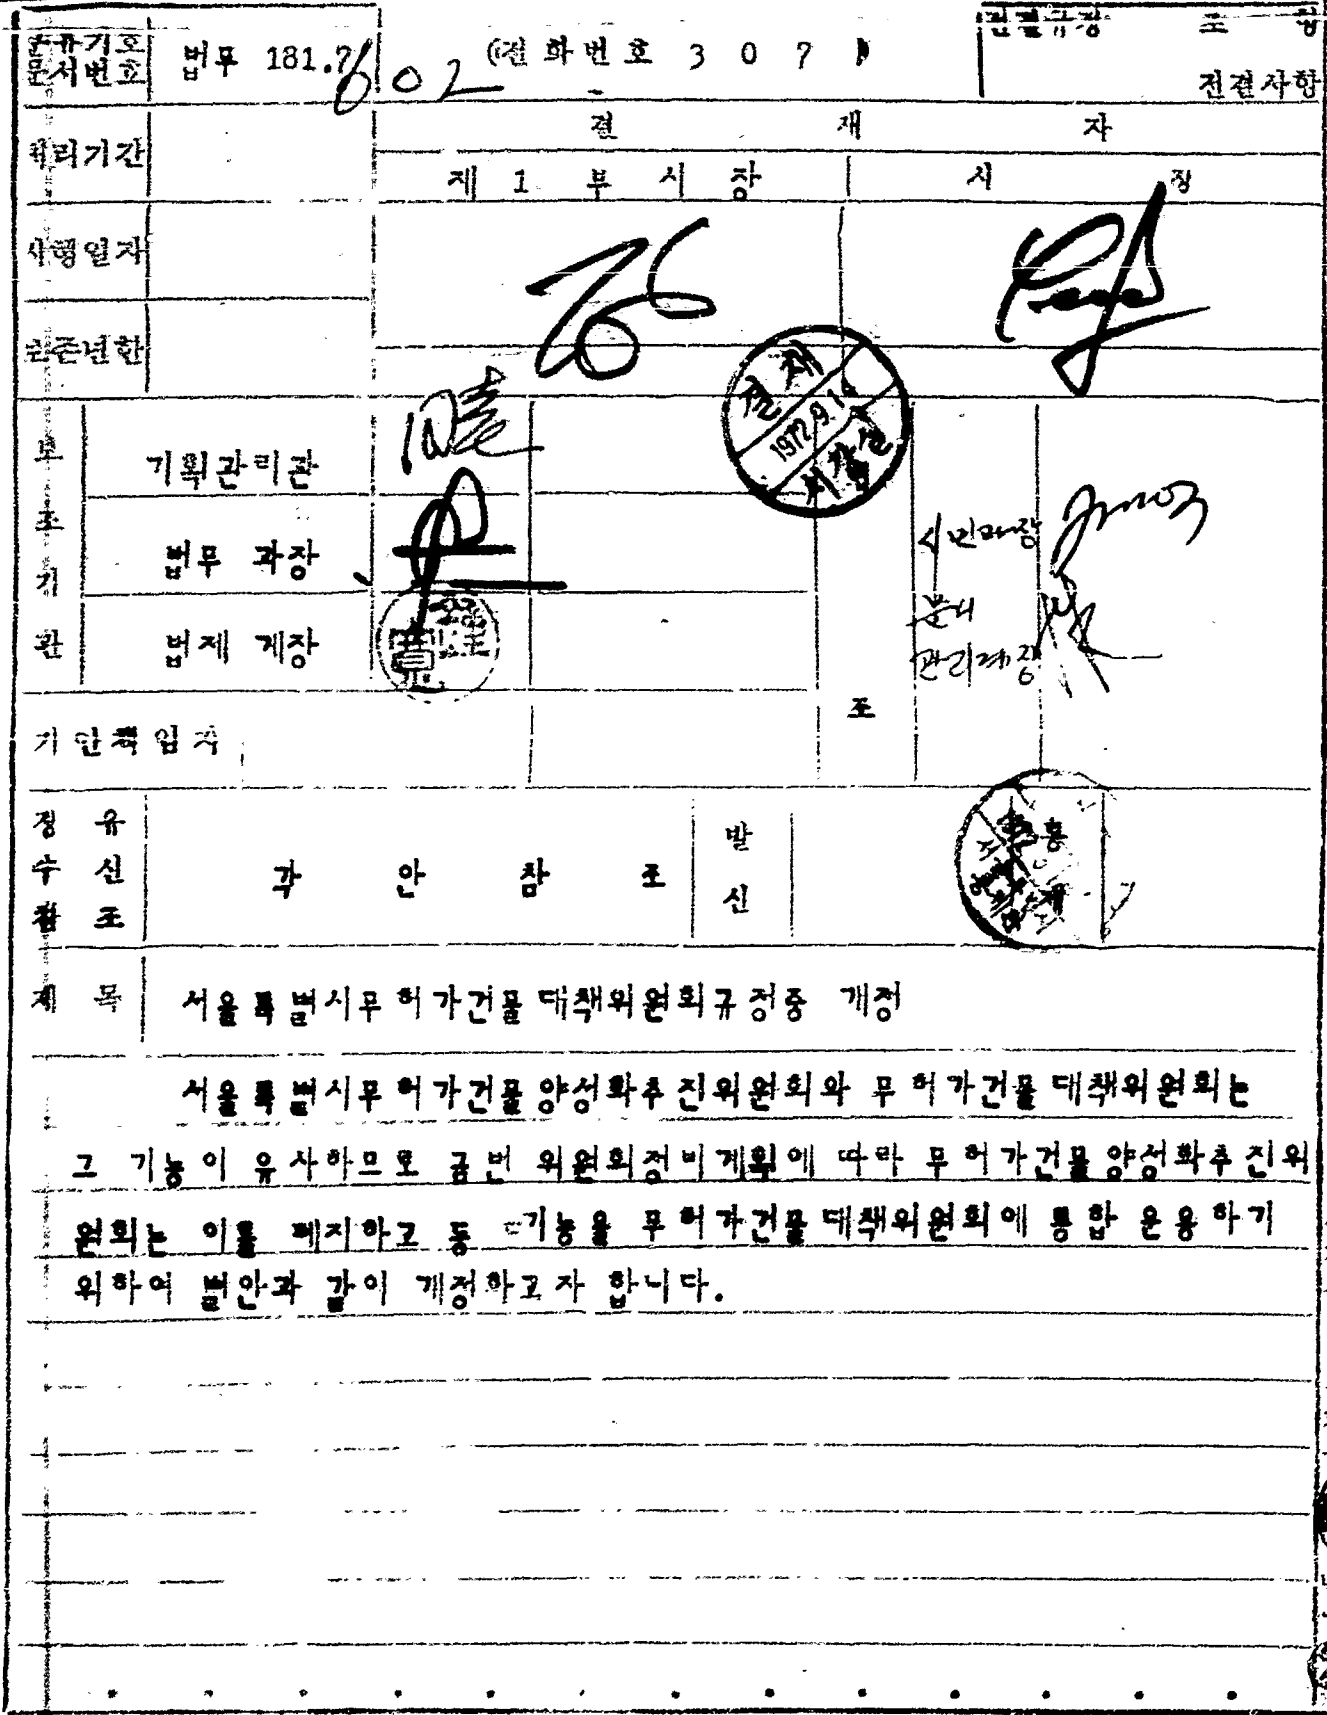 분류기호
문서번호
법무 181.7
602
(전화번호 3 0 7 )
전결규정 조 항
전결사항
처리기간
결 재 자
제 1 부 시 장
시 장
시행일자
보존년한
결재
1972.9.14
시장실
보 조 기 관
기획관리관
법무 과장
법제 계장
시민과장
분시
관리계장
조
기안책임자
경 유
수 신
참 조
각 안 참 조
발 신
제 목 서울특별시무허가건물대책위원회규정중 개정
서울특별시무허가건물양성화추진위원회와 무허가건물대책위원회는
그 기능이 유사하므로 금번 위원회정비계획에 따라 무허가건물양성화추진위
원회는 이를 폐지하고 동 기능을 무허가건물대책위원회에 통합 운용하기
위하여 별안과 같이 개정하고자 합니다.